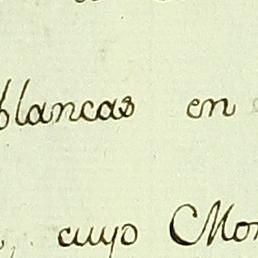 blancas en
cuyo Mon